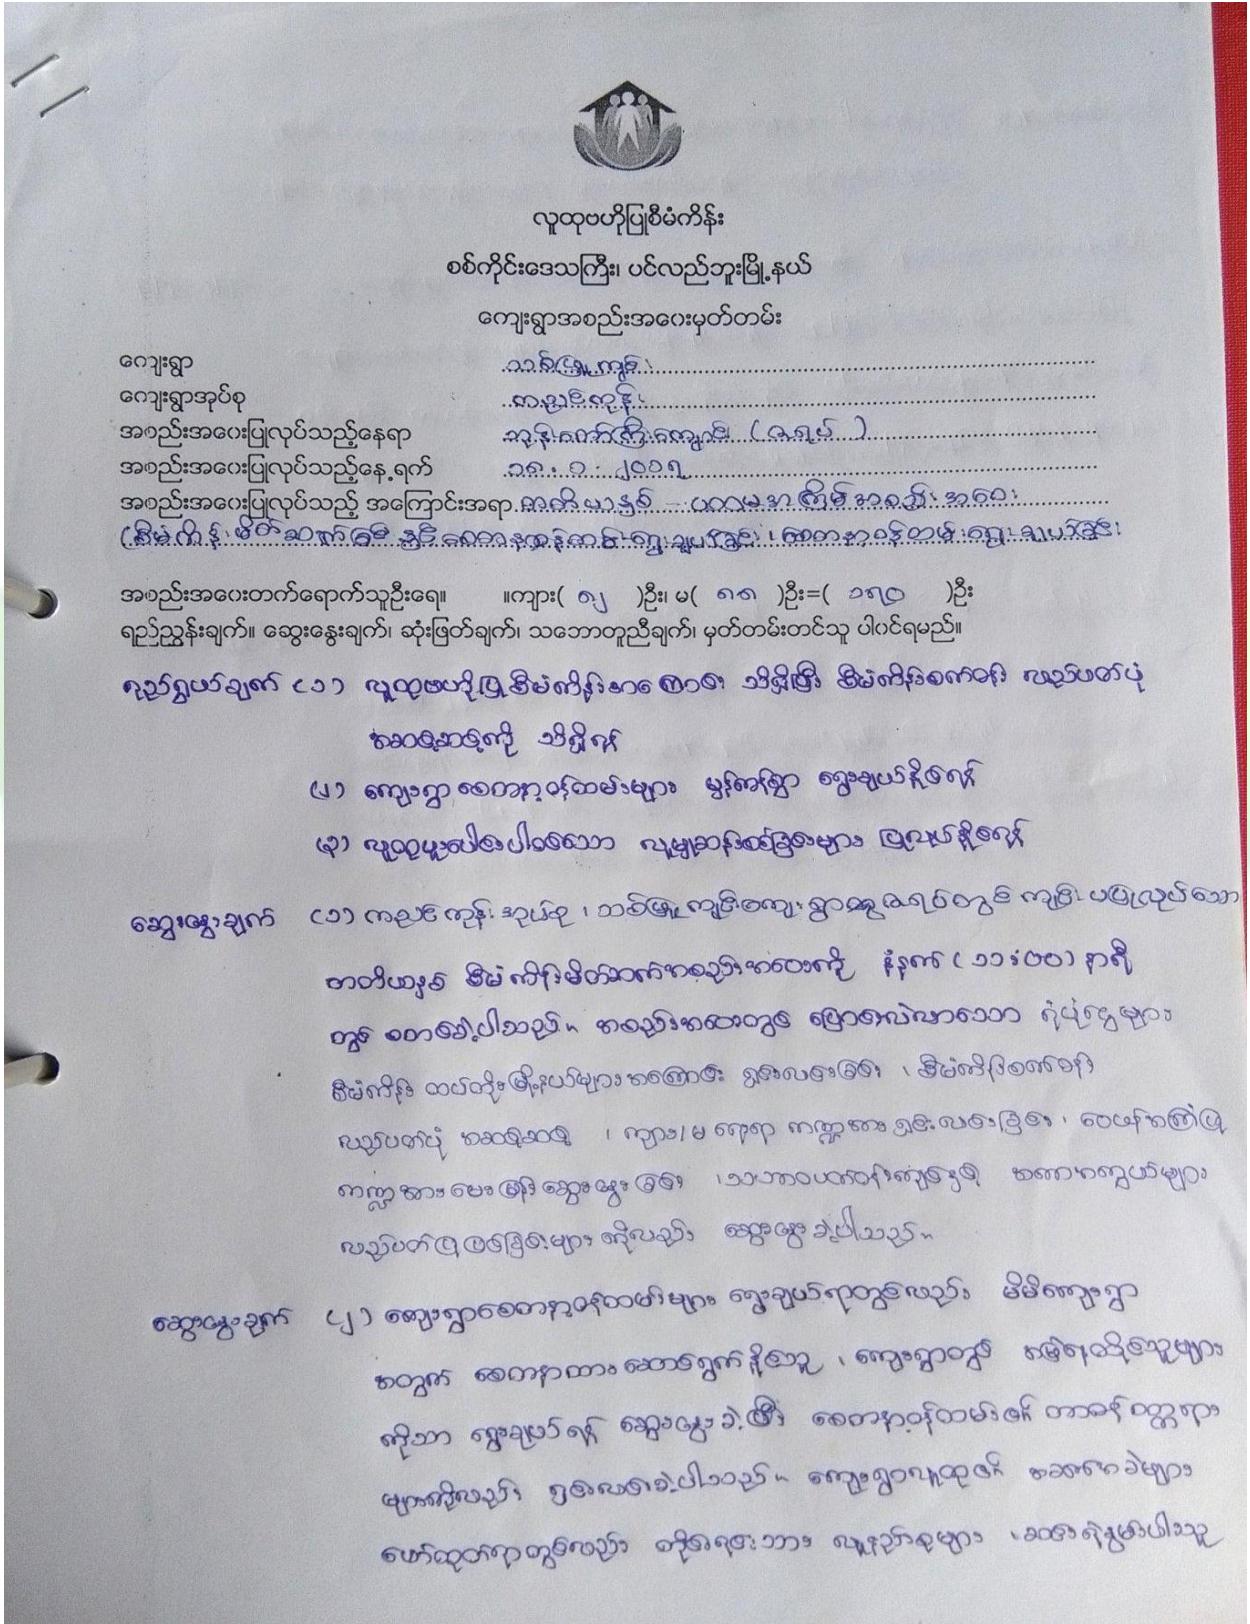 လူထုဗဟိုပြုစီမံကိန်း
စစ်ကိုင်းဒေသကြီး၊ ပင်လည်ဘူးမြို့နယ်
ကျေးရွာအစည်းအဝေးမှတ်တမ်း
ကျေးရွာ သစ်ဖြူကျင်း
ကျေးရွာအုပ်စု ကညင်ကုန်း
အစည်းအဝေးပြုလုပ်သည့်နေရာ ဘုန်းတော်ကြီးကျောင်း (ဇရပ်)
အစည်းအဝေးပြုလုပ်သည့်နေ့ရက် ၁၈.၁.၂၀၁၇
အစည်းအဝေးပြုလုပ်သည့် အကြောင်းအရာ တတိယနှစ် - ပထမအကြိမ်အစည်းအဝေး
(စီမံကိန်းမိတ်ဆက်ခြင်းနှင့် စေတနာ့ဝန်ထမ်းရွေးချယ်ခြင်း၊ စေတနာ့ဝန်ထမ်းရွေးချယ်ခြင်း
အစည်းအဝေးတက်ရောက်သူဦးရေ။ ။ကျား( ၈၂ )ဦး၊ မ( ၈၈ )ဦး=( ၁၇၀ )ဦး
ရည်ညွှန်းချက်။ ဆွေးနွေးချက်၊ ဆုံးဖြတ်ချက်၊ သဘောတူညီချက်၊ မှတ်တမ်းတင်သူ ပါဝင်ရမည်။
ရည်ရွယ်ချက် (၁) လူထုဗဟိုပြုစီမံကိန်းအကြောင်း သိရှိပြီး စီမံကိန်းစက်ဝန်း လည်ပတ်ပုံ
အဆင့်ဆင့်ကို သိရှိရန်
(၂) ကျေးရွာစေတနာ့ဝန်ထမ်းများ မှန်ကန်စွာ ရွေးချယ်နိုင်ရန်
(၃) လူထုပူးပေါင်းပါဝင်သော လူမှုဆန်းစစ်ခြင်းများ ပြုလုပ်နိုင်ရန်
ဆွေးနွေးချက် (၁) ကညင်ကုန်းအုပ်စု၊ သစ်ဖြူကျင်းကျေးရွာ ဇရပ်တွင် ကျင်းပပြုလုပ်သော
တတိယနှစ် စီမံကိန်းမိတ်ဆက်အစည်းအဝေးကို နံနက် (၁၁:၀၀) နာရီ
တွင် စတင်ခဲ့ပါသည်။ အစည်းအဝေးတွင် ပြောင်းလဲလာသော ရံပုံငွေများ
စီမံကိန်း ထပ်တိုးမြို့နယ်များအကြောင်း ရှင်းလင်းခြင်း၊ စီမံကိန်းစက်ဝန်း
လည်ပတ်ပုံ အဆင့်ဆင့်၊ ကျား/မ ရေးရာ ကဏ္ဍအား ရှင်းလင်းခြင်း၊ ဝေဖန်အကြံပြု
ကဏ္ဍအား မေးမြန်းဆွေးနွေးခြင်း၊ သဘာဝပတ်ဝန်းကျင်နှင့် အကာအကွယ်များ
လည်ပတ်ပြုပြင်ခြင်းများ ကိုလည်း ဆွေးနွေးခဲ့ပါသည်။
ဆွေးနွေးချက် (၂) ကျေးရွာစေတနာ့ဝန်ထမ်းများ ရွေးချယ်ရာတွင်လည်း မိမိကျေးရွာ
အတွက် စေတနာထား ဆောင်ရွက်နိုင်သူ၊ ကျေးရွာတွင် အမြဲနေထိုင်သူများ
ကိုသာ ရွေးချယ်ရန် ဆွေးနွေးခဲ့ပြီး စေတနာ့ဝန်ထမ်း၏ တာဝန်ဝတ္တရား
များကိုလည်း ရှင်းလင်းခဲ့ပါသည်။ ကျေးရွာလူထု၏ အခက်အခဲများ
ဖော်ထုတ်ရာတွင်လည်း တိုင်းရင်းသား လူနည်းစုများ၊ ဆင်းရဲနွမ်းပါးသူ